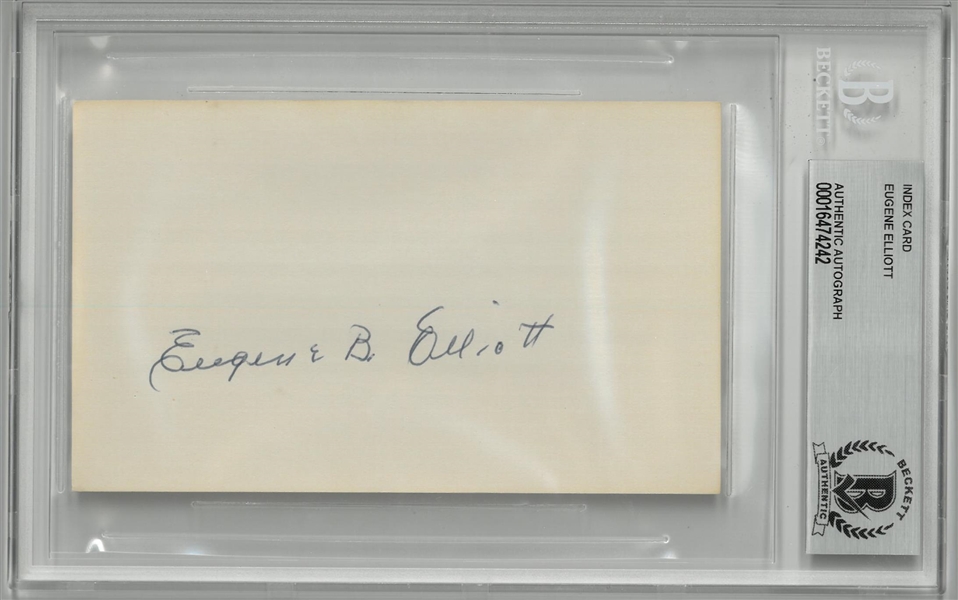 Eugene B. Elliott
BECKETT
B
INDEX CARD
EUGENE ELLIOTT
AUTHENTIC AUTOGRAPH
00016474242
BECKETT
B
AUTHENTIC